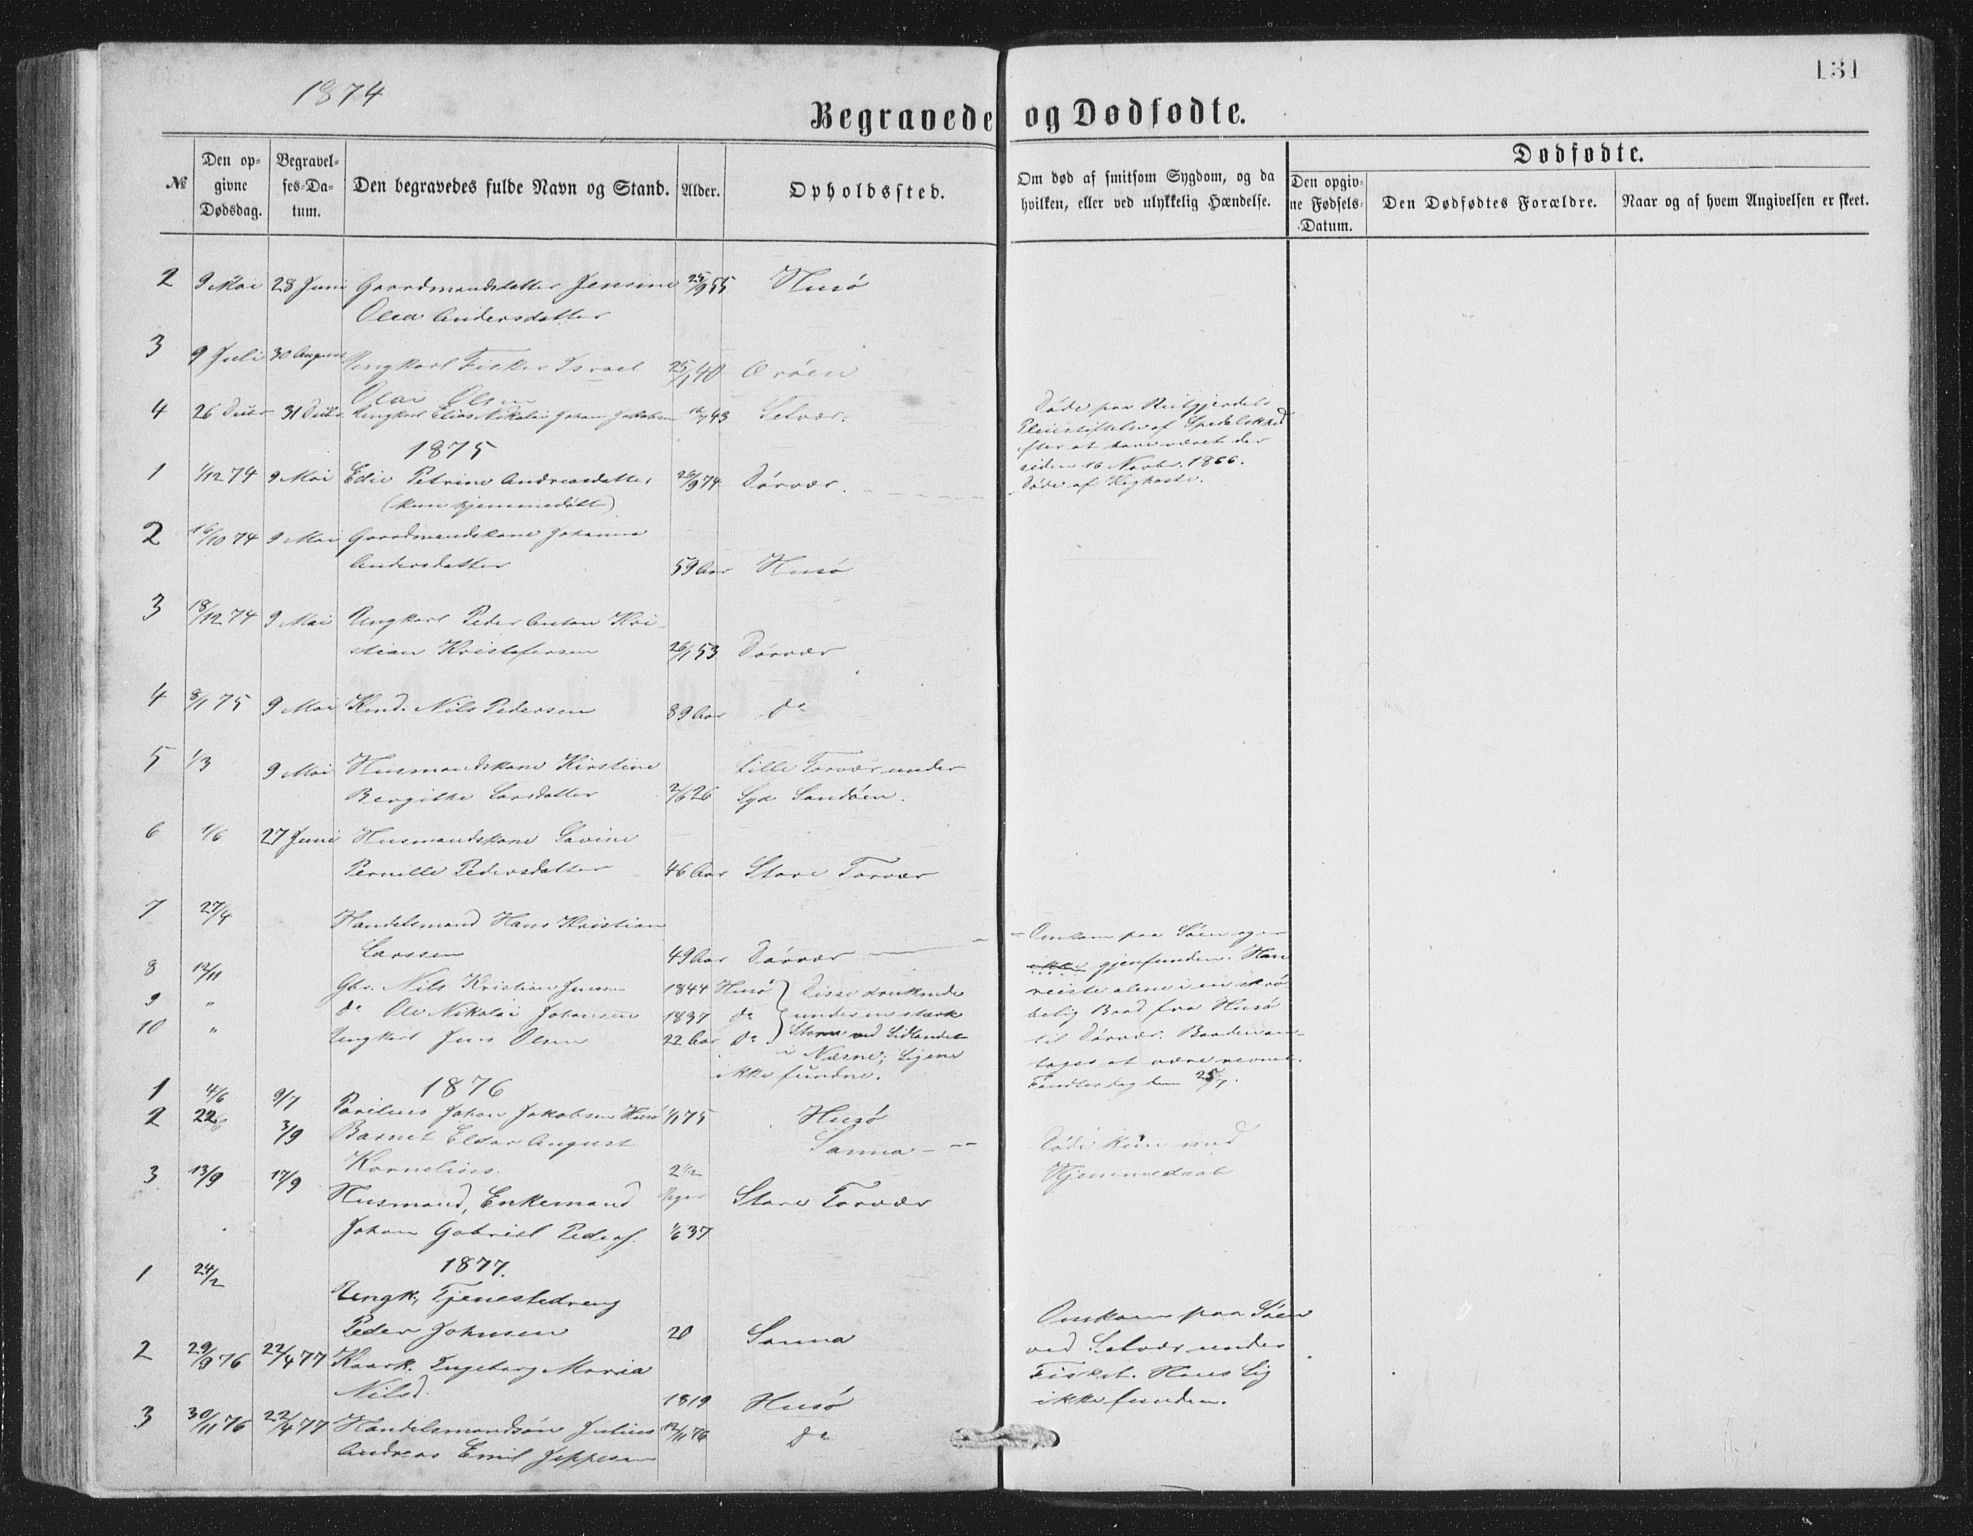 131
1874
Begravede og Dødfødte.
№
Den op-
givne
Dødsdag.
Begravel-
ses-Da-
tum.
Den begravedes fulde Navn og Stand.
Alder.
Opholdssted.
Om død af smitsom Sygdom, og da
hvilken, eller ved ulykkelig Hændelse.
Dødfødte.
Den opgiv-
ne Fødsels-
Datum.
Den Dødfødtes Forældre.
Naar og af hvem Angivelsen er skeet.
2 9 Mai 28 Juni Gaardmandsdatter Jensine 25/9 55 Husø
Olea Andersdatter
3 9 Juli 30 August Ungkarl Fisker Israel 25/1 40
Olai Olsen
4 26 Decbr 31 Decbr. Ungkarl Elias Nikolai Johan Jakobsen 16/7 43 Selvær.
Døde paa Reitgjerdets
Pleiestiftelse af Spedalskhed
efter at have været der
siden 16 Novbr. 1866.
1875
1 1/12 74 9 Mai Edie Petrine Andreasdatter 26/9 74 Dørvær.
Døde af Kighoste.
(kun hjemmedøbt)
2 16/10 74 9 Mai Gaardmandskone Johanna
Andersdatter 59 Aar Husø
3 18/12 74 9 Mai Ungkarl Peder Anton Kri-
stian Kristofersen 26/1 53 Dørvær
4 8/1 75 9 Mai Kmd. Nils Pedersen 89 Aar do
5 1/3 9 Mai Husmandskone Kirstine Lille Torvær under
Bergithe Larsdatter 2/6 26 Syd Sandøen.
6 1/6 27 Juni Husmandskone Savine
Pernille Pedersdatter 46 Aar Store Torvær
7 27/4 Handelsmand Hans Kristian
Larssen 49 Aar Dørvær
Omkom paa Søen og er
ikke gjenfunden. Han
reiste alene i en skrø-
belig Baad fra Husø
til Dørvær. Baaden an-
toges at være revnet.
Fandtes dag den 25/7.
8 12/11 Gbr. Nils Kristian Jensen 1844 Husø
9 " do Ole Nikolai Johansen 1837 do
10 " Ungkarl Jens Olsen 22 Aar do
Disse druknede
under en stærk
Storm ved Sidlandet
i Næsne; Ligene
ikke fundne.
1876
1 4/6 9/7 Johan Jakobsen Husø 1/1 75 Husø
2 22/6 3/9 Barnet Eldor August Sanna
Kornelius. 2 1/2
Uger
Døde kun med
Hjemmedaab
3 13/9 17/9 Husmand, Enkemand Store Torvær
Johan Gabriel Peders. 1/6 37
1877.
1 24/2 Ungk., Tjenestedreng
Peder Johnsen 20 Sanna
Omkom paa Søen
ved Selvær under
Fiskeri. Hans Lig
ikke funden.
2 29/9 76 22/4 77 Kaark. Ingeborg Maria
Nilsd. 1819 Husø
3 30/11 76 22/4 77 Handelsmandsøn Julius 12/11 76 do
Andreas Emil Jeppesen